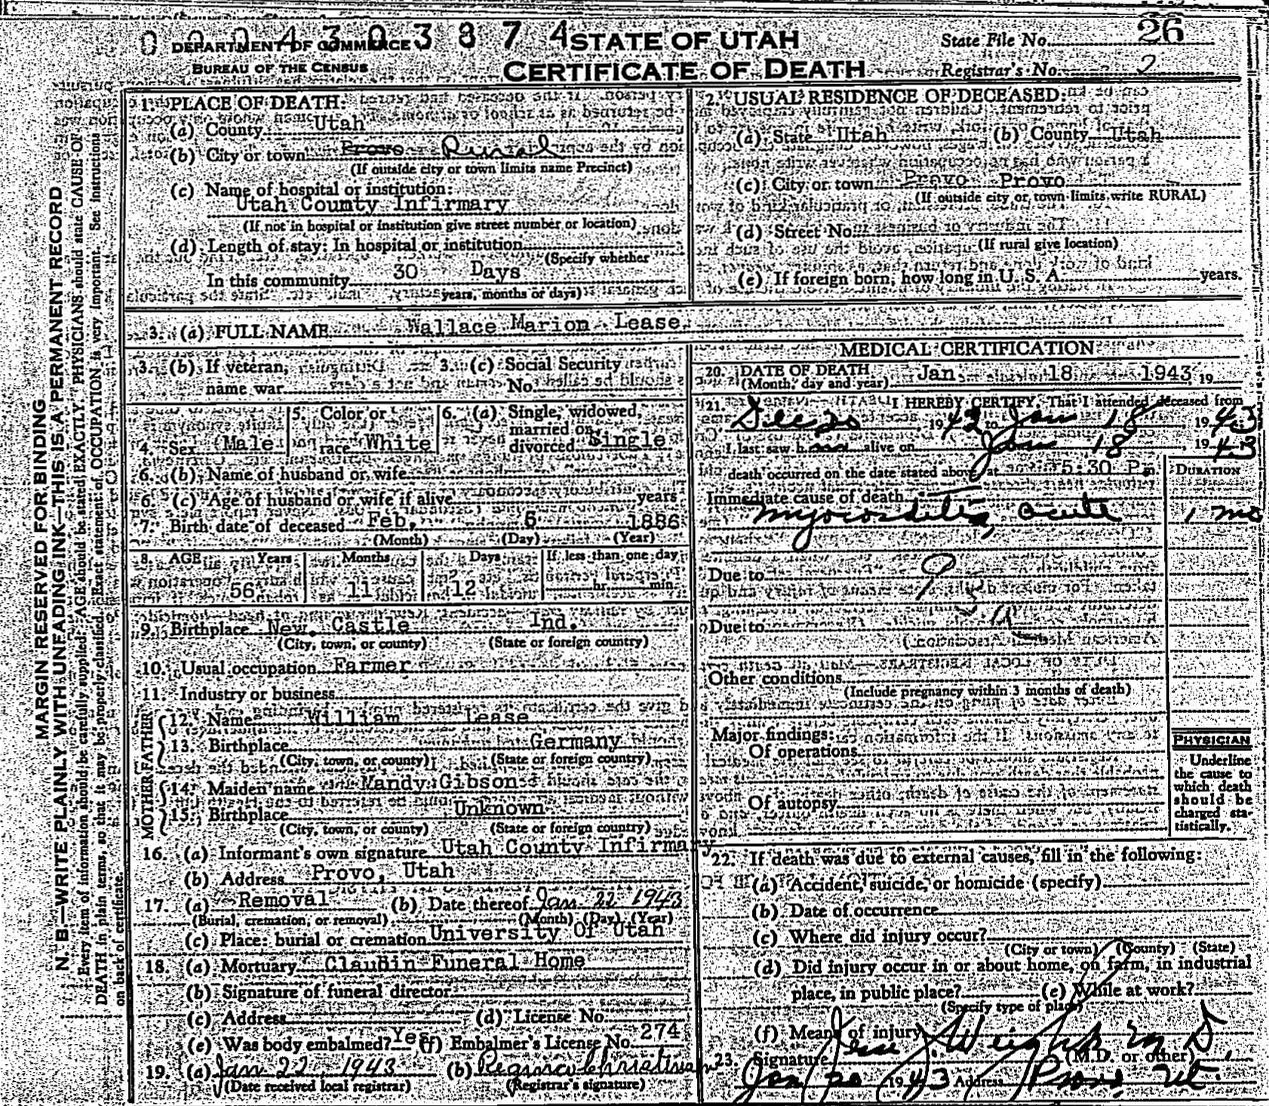 0 0 0 4 3 0 3 8 7 4
DEPARTMENT OF COMMERCE
BUREAU OF THE CENSUS
STATE OF UTAH
CERTIFICATE OF DEATH
State File No. 26
Registrar's No. 2
MARGIN RESERVED FOR BINDING
N. B.—WRITE PLAINLY WITH UNFADING INK—THIS IS A PERMANENT RECORD
Every item of information should be carefully supplied. AGE should be stated EXACTLY. PHYSICIANS should state CAUSE OF
DEATH in plain terms, so that it may be properly classified. Exact statement of OCCUPATION is very important. See instructions
on back of certificate.
1. PLACE OF DEATH:
(a) County Utah
(b) City or town Provo Rural
(If outside city or town limits name Precinct)
(c) Name of hospital or institution:
Utah County Infirmary
(If not in hospital or institution give street number or location)
(d) Length of stay: In hospital or institution
(Specify whether
In this community 30 Days
years, months or days)
2. USUAL RESIDENCE OF DECEASED:
(a) State Utah (b) County Utah
(c) City or town Provo Provo
(If outside city or town limits, write RURAL)
(d) Street No.
(If rural give location)
(e) If foreign born, how long in U. S. A. years.
3. (a) FULL NAME Wallace Marion Lease
3. (b) If veteran, name war
3. (c) Social Security No.
4. Sex Male
5. Color or race White
6. (a) Single, widowed, married or divorced Single
6. (b) Name of husband or wife
6. (c) Age of husband or wife if alive years
7. Birth date of deceased Feb. 6 1886
(Month) (Day) (Year)
8. AGE Years Months Days If less than one day
56 11 12 hr. min.
9. Birthplace New Castle Ind.
(City, town, or county) (State or foreign country)
10. Usual occupation Farmer
11. Industry or business
FATHER
12. Name William Lease
13. Birthplace Germany
(City, town, or county) (State or foreign country)
MOTHER
14. Maiden name Mandy Gibson
15. Birthplace Unknown
(City, town, or county) (State or foreign country)
16. (a) Informant's own signature Utah County Infirmary
(b) Address Provo, Utah
17. (a) Removal (b) Date thereof Jan 22 1943
(Burial, cremation, or removal) (Month) (Day) (Year)
(c) Place: burial or cremation University Of Utah
18. (a) Mortuary Claudin Funeral Home
(b) Signature of funeral director
(c) Address (d) License No.
(e) Was body embalmed? Yes (f) Embalmer's License No. 274
19. (a) Jan 22, 1943 (b)
(Date received local registrar) (Registrar's signature)
MEDICAL CERTIFICATION
20. DATE OF DEATH Jan 18 1943 19
(Month, day and year)
21. I HEREBY CERTIFY, That I attended deceased from
Dec 20 1942 to Jan 18 1943
I last saw him alive on Jan 18 1943
death occurred on the date stated above at 5:30 P m.
DURATION
Immediate cause of death
Myocarditis, acute 1 mo
Due to
Due to
Other conditions
(Include pregnancy within 3 months of death)
Major findings:
Of operations
Of autopsy
PHYSICIAN
Underline
the cause to
which death
should be
charged sta-
tistically.
22. If death was due to external causes, fill in the following:
(a) Accident, suicide, or homicide (specify)
(b) Date of occurrence
(c) Where did injury occur?
(City or town) (County) (State)
(d) Did injury occur in or about home, on farm, in industrial
place, in public place? (e) While at work?
(Specify type of place)
(f) Means of injury
23. Signature M.D.
(M.D. or other)
Jan 20 1943 Address Provo, Ut.